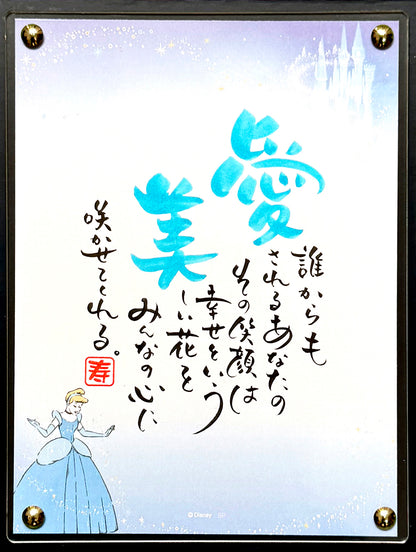 誰からも
愛されるあなたの
その笑顔は
幸せという
美しい花を
みんなの心に
咲かせてくれる。
寿
© Disney